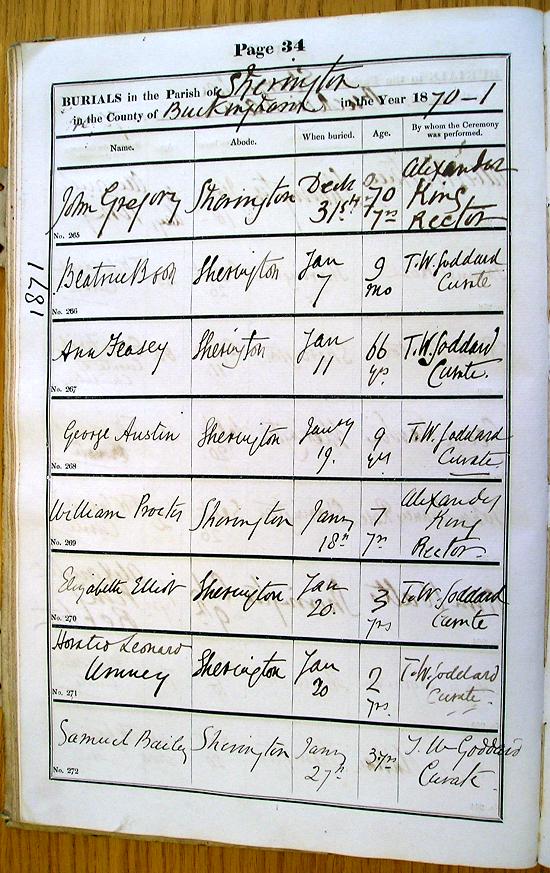 Page 34
BURIALS in the Parish of Sherington
in the County of Buckingham in the Year 1870-1
Name. Abode. When buried. Age. By whom the Ceremony was performed.
John Gregory Sherington Dech 31st 70 yrs Alexander King Rector
No. 265
1871
Beatrice Book Sherington Jan 7 9 mo T.W. Goddard Curate
No. 266
Ann Feasey Sherington Jan 11 66 yrs T.W. Goddard Curate.
No. 267
George Austin Sherington Jany 19. 9 yrs T.W. Goddard Curate
No. 268
William Procter Sherington Jany 18th 7 yrs Alexander King Rector
No. 269
Elizabeth Elliot Sherington Jan 20. 3 yrs T.W. Goddard Curate
No. 270
Horatio Leonard Umney Sherington Jan 20 2 yrs T.W. Goddard Curate.
No. 271
Samuel Bailey Sherington Jany 27th 3 yrs T.W. Goddard Curate.
No. 272